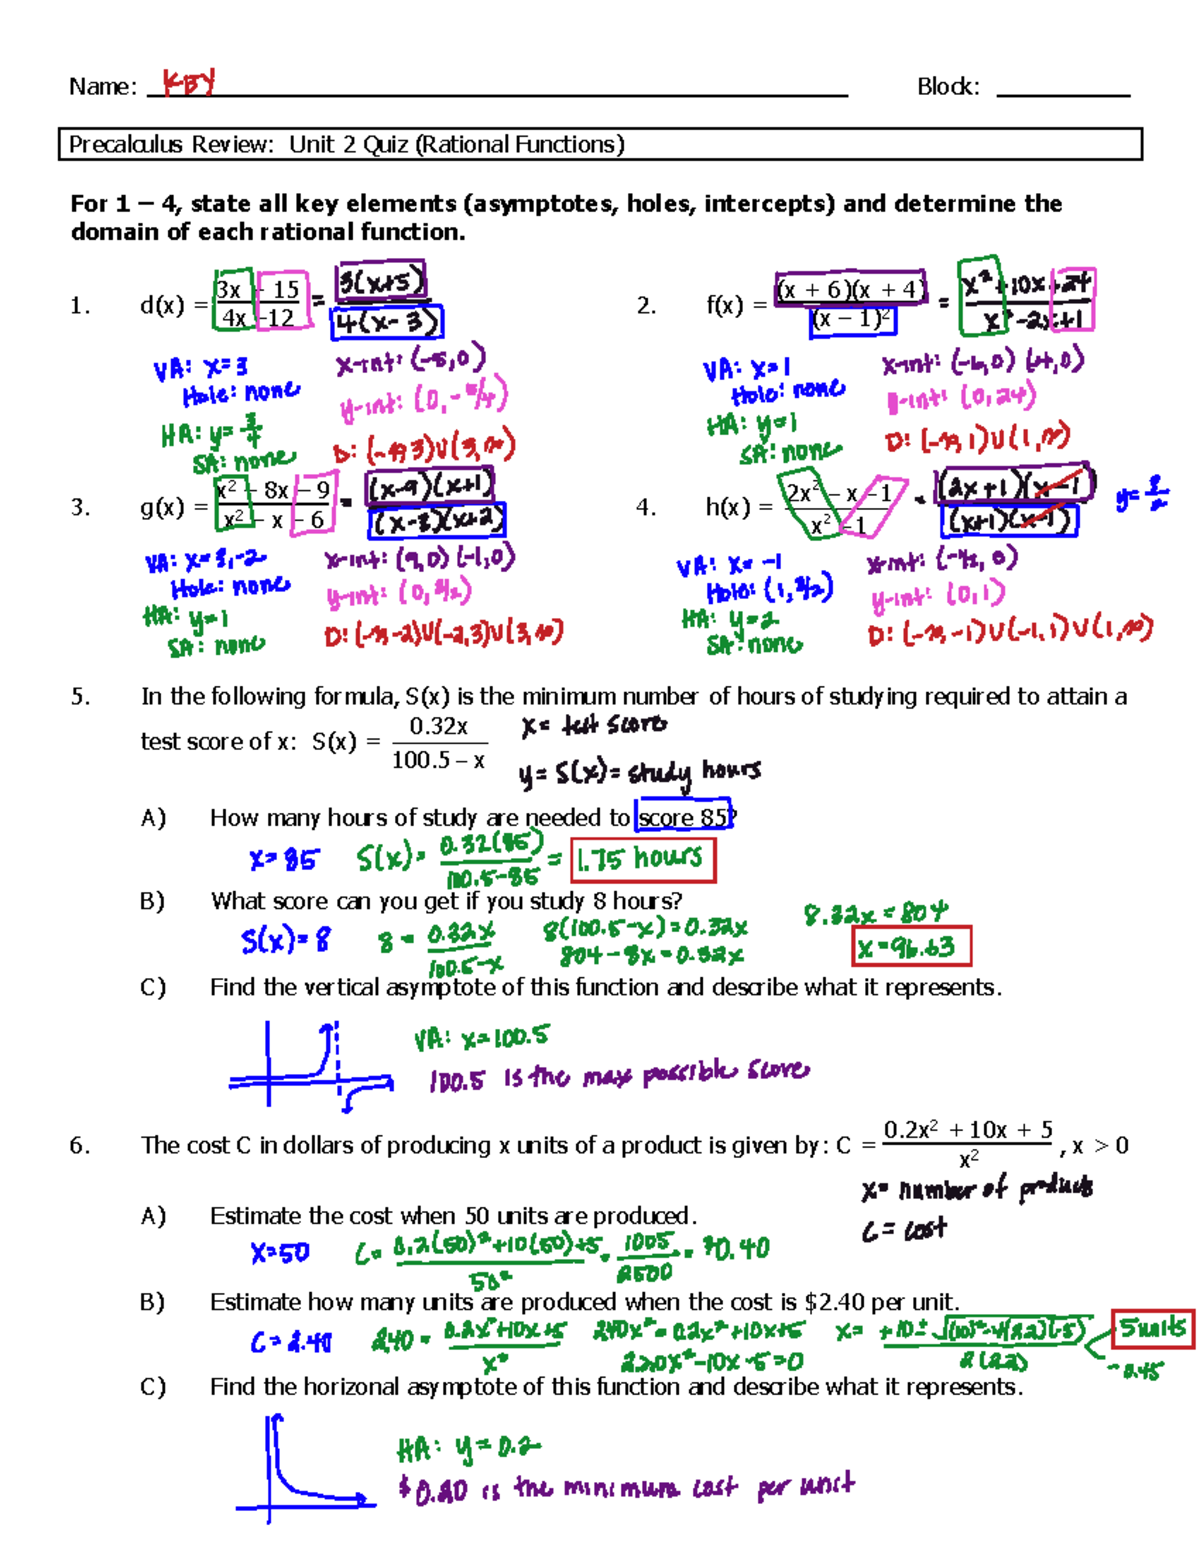 Name: KEY Block:
Precalculus Review: Unit 2 Quiz (Rational Functions)
For 1 – 4, state all key elements (asymptotes, holes, intercepts) and determine the
domain of each rational function.
1. d(x) = 3x – 15 / 4x –12 = 3(x+5) / 4(x-3)
VA: x=3
Hole: none
HA: y= 3/4
SA: none
x-int: (-5,0)
y-int: (0,-5/4)
D: (-∞,3)U(3,∞)
2. f(x) = (x + 6)(x + 4) / (x – 1)² = x²+10x+24 / x²-2x+1
VA: x=1
Hole: none
HA: y=1
SA: none
x-int: (-6,0) (-4,0)
y-int: (0,24)
D: (-∞,1)U(1,∞)
3. g(x) = x² – 8x – 9 / x² – x – 6 = (x-9)(x+1) / (x-3)(x+2)
VA: x=3,-2
Hole: none
HA: y=1
SA: none
x-int: (9,0) (-1,0)
y-int: (0,3/2)
D: (-∞,-2)U(-2,3)U(3,∞)
4. h(x) = 2x² – x –1 / x² –1 = (2x+1)(x-1) / (x+1)(x-1) y= 3/2
VA: x= -1
Hole: (1,3/2)
HA: y=2
SA: none
x-int: (-1/2, 0)
y-int: (0,1)
D: (-∞,-1)U(-1,1)U(1,∞)
5. In the following formula, S(x) is the minimum number of hours of studying required to attain a
test score of x: S(x) = 0.32x / 100.5 – x
x= test score
y= S(x)= study hours
A) How many hours of study are needed to score 85?
x=85 S(x)= 0.32(85) / 100.5-85 = 1.75 hours
B) What score can you get if you study 8 hours?
S(x)=8 8 = 0.32x / 100.5-x
8(100.5-x)=0.32x
804-8x=0.32x
8.32x=804
x=96.63
C) Find the vertical asymptote of this function and describe what it represents.
VA: x=100.5
100.5 is the max possible score
6. The cost C in dollars of producing x units of a product is given by: C = 0.2x² + 10x + 5 / x² , x > 0
x= number of products
C= cost
A) Estimate the cost when 50 units are produced.
x=50 C= 0.2(50)²+10(50)+5 / 50² = 1005 / 2500 = $0.40
B) Estimate how many units are produced when the cost is $2.40 per unit.
C=2.40 2.40 = 0.2x²+10x+5 / x²
2.40x²=0.2x²+10x+5
2.20x²-10x-5=0
x= +10± √(10)²-4(2.2)(-5) / 2(2.2)
5 units
-0.45
C) Find the horizonal asymptote of this function and describe what it represents.
HA: y=0.2
$0.20 is the minimum cost per unit